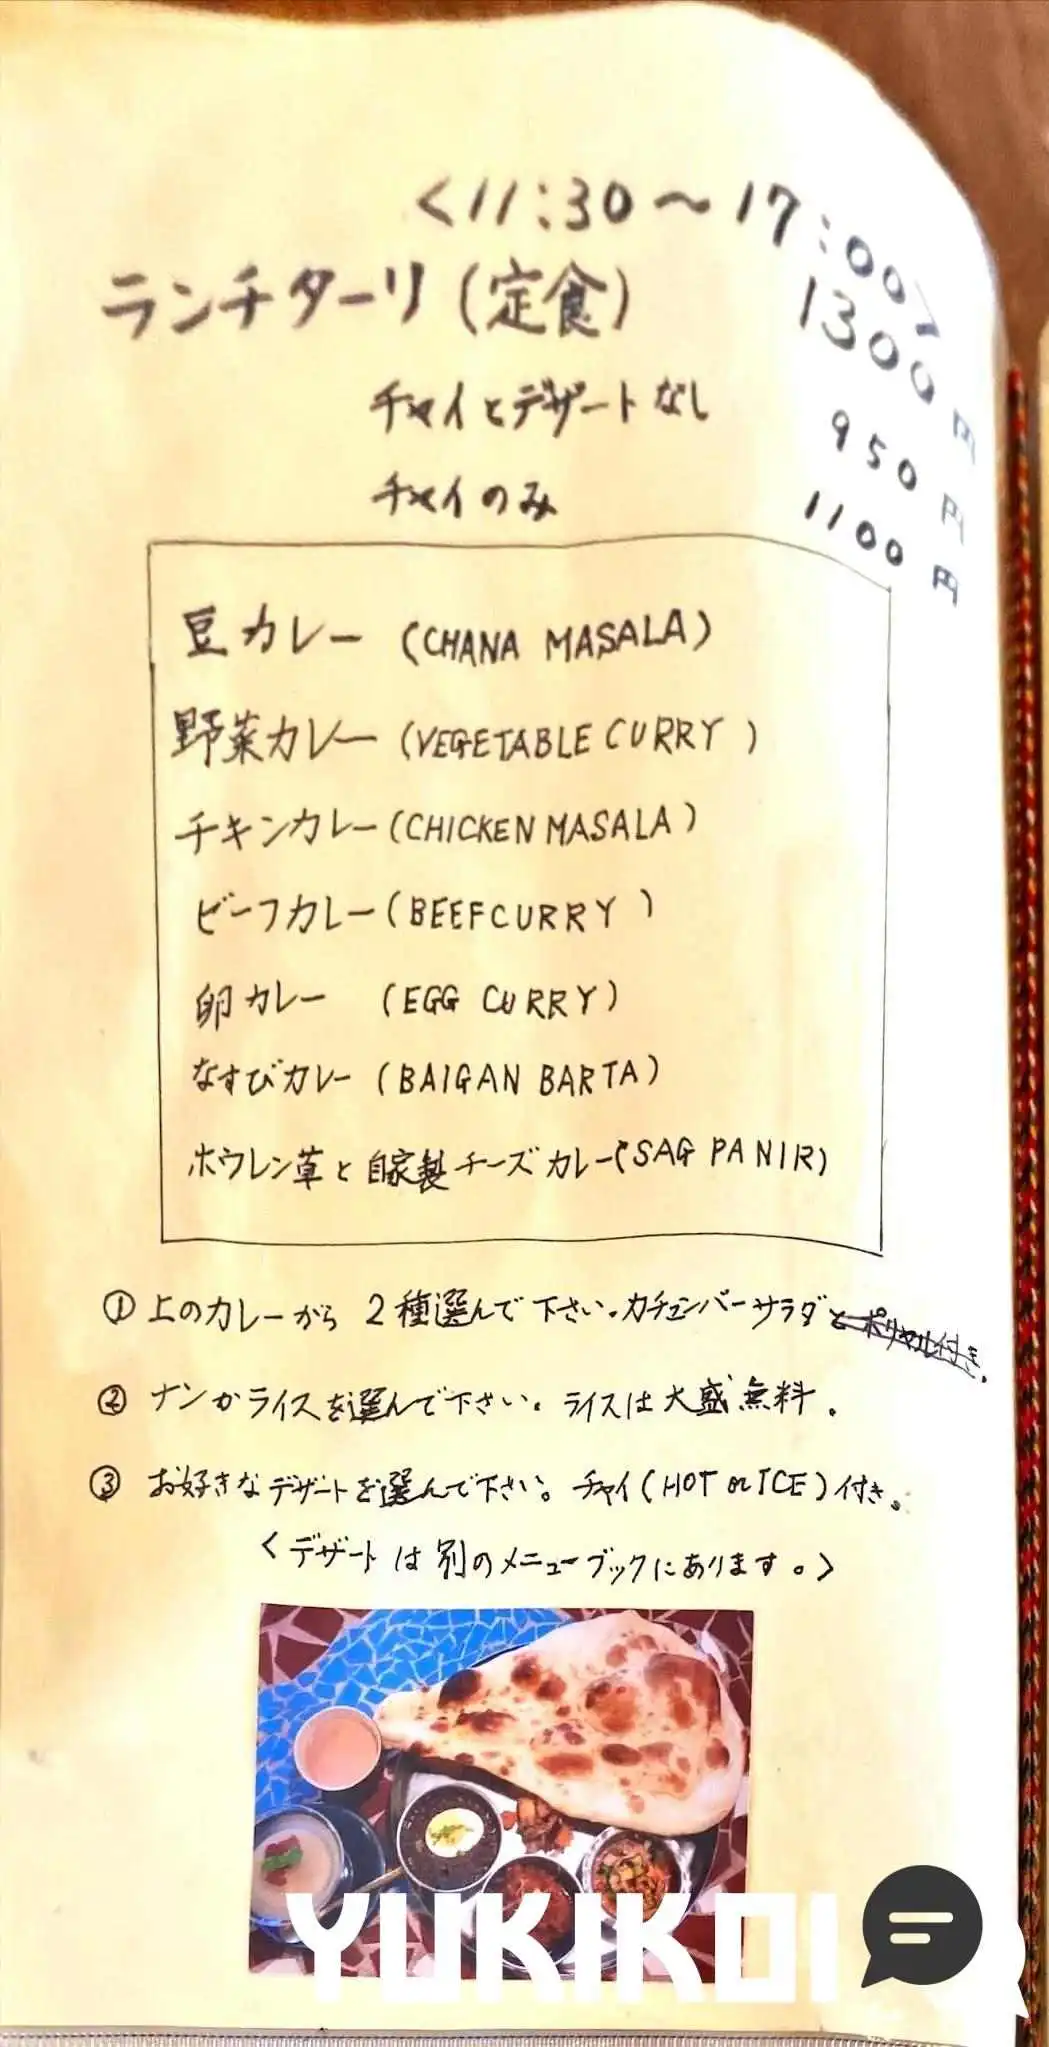 <11:30～17:00>
ランチターリ(定食) 1300円
チャイとデザートなし 950円
チャイのみ 1100円
豆カレー (CHANA MASALA)
野菜カレー (VEGETABLE CURRY )
チキンカレー(CHICKEN MASALA)
ビーフカレー(BEEFCURRY )
卵カレー (EGG CURRY)
なすびカレー (BAIGAN BARTA)
ホウレン草と自家製チーズカレー(SAG PANIR)
① 上のカレーから 2種選んで下さい。カチュンバーサラダ
② ナンかライスを選んで下さい。ライスは大盛無料。
③ お好きなデザートを選んで下さい。チャイ(HOT or ICE)付き。
<デザートは別のメニューブックにあります。>
YUKIKOI